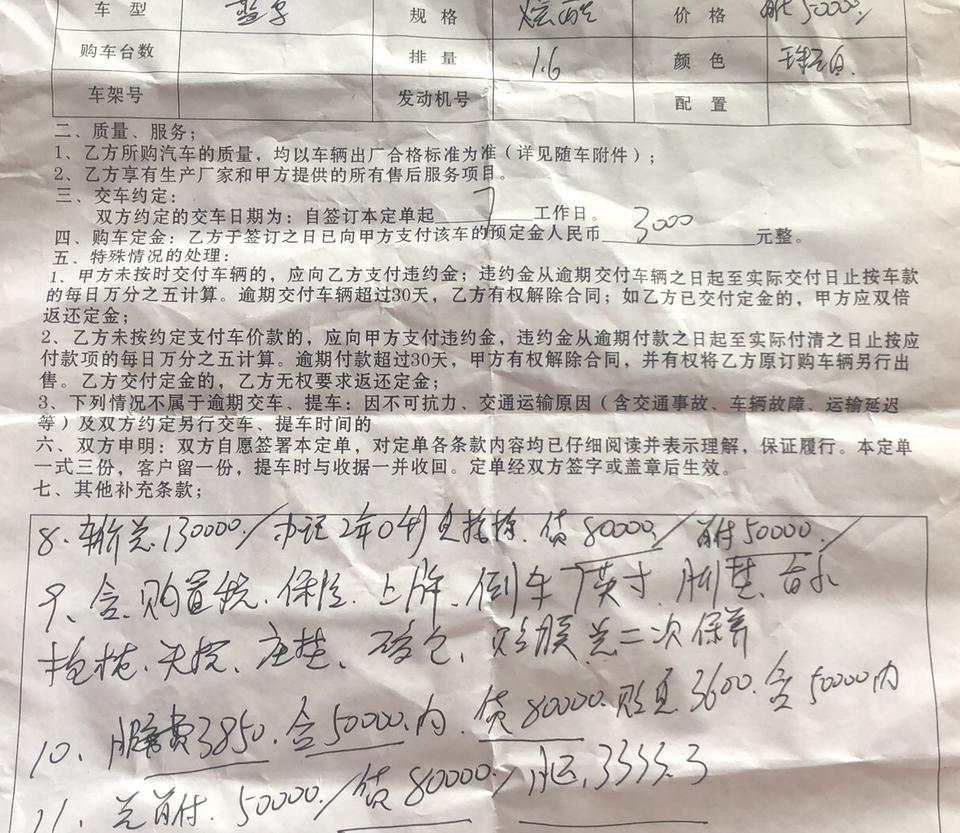 车 型 规 格 价 格 50000/
购车台数 排 量 1.6 颜 色 珠光白.
车架号 发动机号 配 置
二、质量、服务；
1、乙方所购汽车的质量，均以车辆出厂合格标准为准（详见随车附件）；
2、乙方享有生产厂家和甲方提供的所有售后服务项目。
三、交车约定：
双方约定的交车日期为：自签订本定单起 7 工作日。
四、购车定金：乙方于签订之日已向甲方支付该车的预定金人民币 3000 元整。
五、特殊情况的处理：
1、甲方未按时交付车辆的，应向乙方支付违约金；违约金从逾期交付车辆之日起至实际交付日止按车款
的每日万分之五计算。逾期交付车辆超过30天，乙方有权解除合同；如乙方已交付定金的，甲方应双倍
返还定金；
2、乙方未按约定支付车价款的，应向甲方支付违约金，违约金从逾期付款之日起至实际付清之日止按应
付款项的每日万分之五计算。逾期付款超过30天，甲方有权解除合同，并有权将乙方原订购车辆另行出
售。乙方交付定金的，乙方无权要求返还定金；
3、下列情况不属于逾期交车、提车：因不可抗力、交通运输原因（含交通事故、车辆故障、运输延迟
等）及双方约定另行交车、提车时间的
六、双方申明：双方自愿签署本定单，对定单各条款内容均已仔细阅读并表示理解，保证履行。本定单
一式三份，客户留一份，提车时与收据一并收回。定单经双方签字或盖章后生效。
七、其他补充条款；
8. 130000./ 2年0利息 贷80000/ 首付50000./
9、含.购置税.保险.上牌.倒车7英寸.脚垫.香水
抱枕. 座垫、 膜 二次保养
10. 费3850.含50000.内.贷80000. 息3600.含50000内
11. 首付.50000./贷80000./ 3333.3